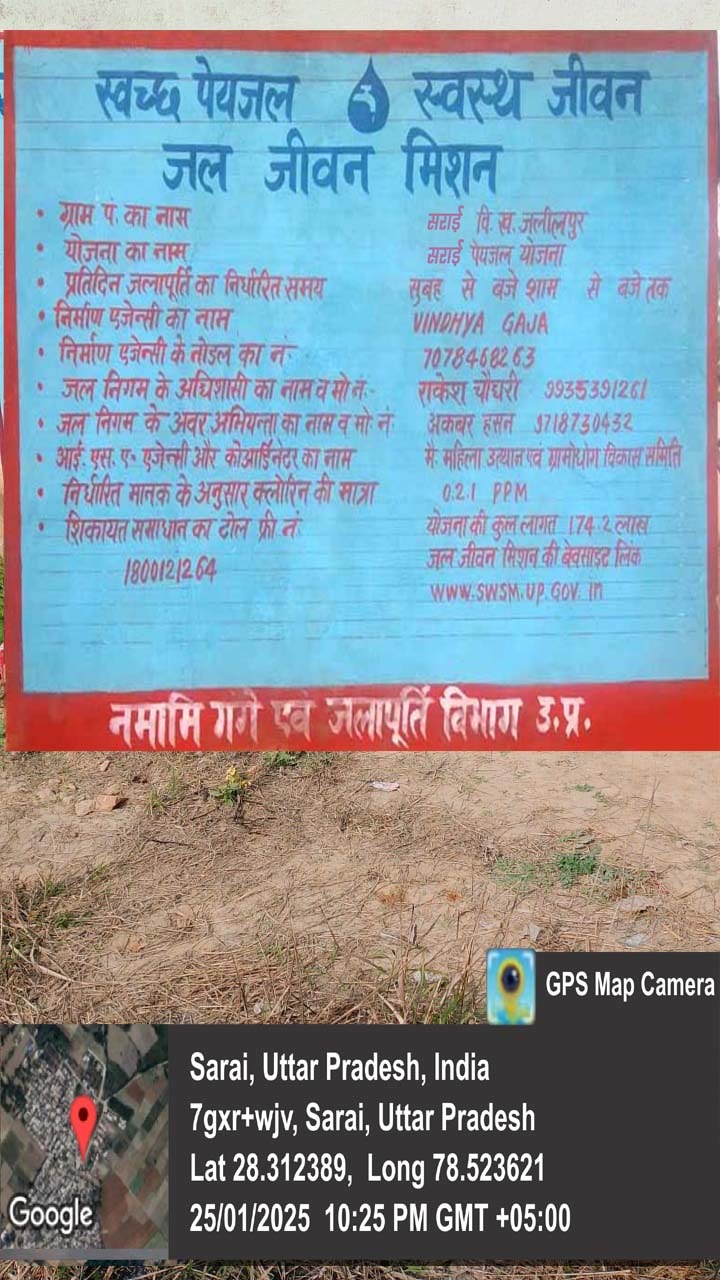 स्वच्छ पेयजल स्वस्थ जीवन
जल जीवन मिशन
• ग्राम पं. का नाम सराई वि.ख. जलीलपुर
• योजना का नाम सराई पेयजल योजना
• प्रतिदिन जलापूर्ति का निर्धारित समय सुबह से बजे शाम से बजे तक
• निर्माण एजेन्सी का नाम VINDHYA GAJA
• निर्माण एजेन्सी के नोडल का नं. 7078468263
• जल निगम के अधिशासी का नाम व मो नं. राकेश चौधरी 9935391261
• जल निगम के अवर अभियन्ता का नाम व मो. नं. अकबर हसन 9718730432
• आई. एस. ए. एजेन्सी और कोआर्डिनेटर का नाम मै. महिला उत्थान एवं ग्रामोधोग विकास समिति
• निर्धारित मानक के अनुसार क्लोरिन की मात्रा 0.21 PPM
• शिकायत समाधान का टोल फ्री नं. योजना की कुल लागत 174.2 लाख
1800121264 जल जीवन मिशन की बेवसाइट लिंक
WWW.SWSM.UP.GOV.in
नमामि गंगे एवं जलापूर्ति विभाग उ.प्र.
GPS Map Camera
Sarai, Uttar Pradesh, India
7gxr+wjv, Sarai, Uttar Pradesh
Lat 28.312389, Long 78.523621
25/01/2025 10:25 PM GMT +05:00
Google